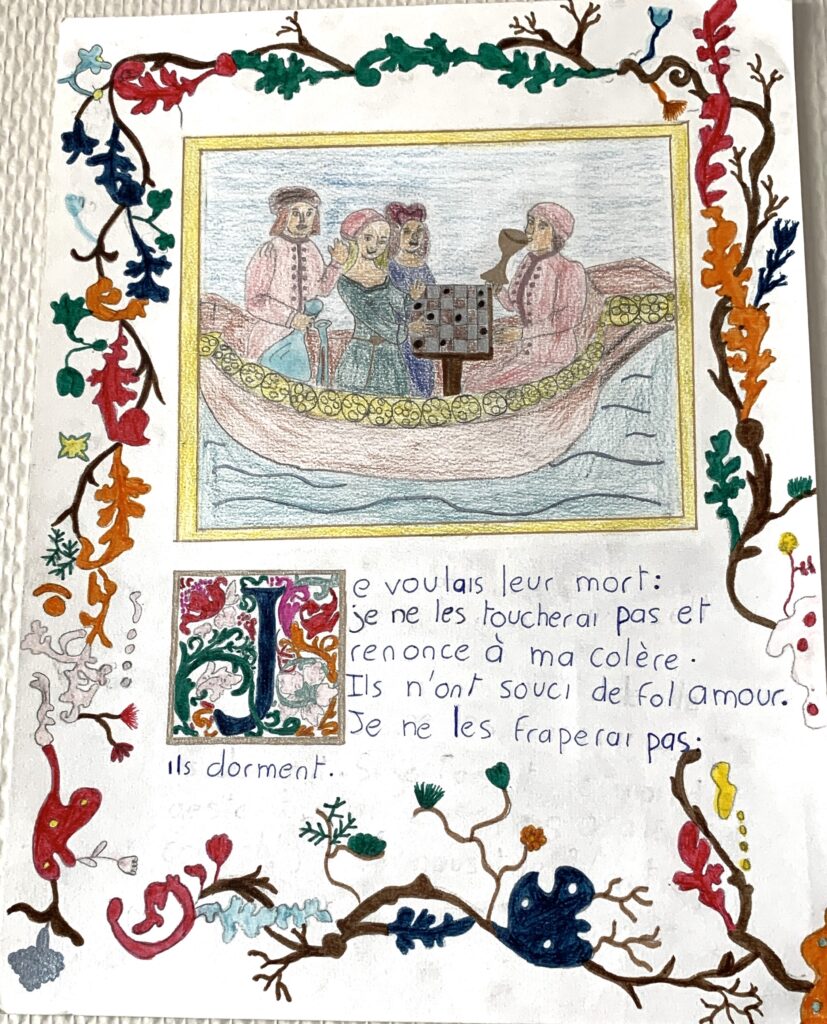 Je voulais leur mort:
je ne les toucherai pas et
renonce à ma colère.
Ils n'ont souci de fol amour.
Je ne les fraperai pas:
ils dorment.